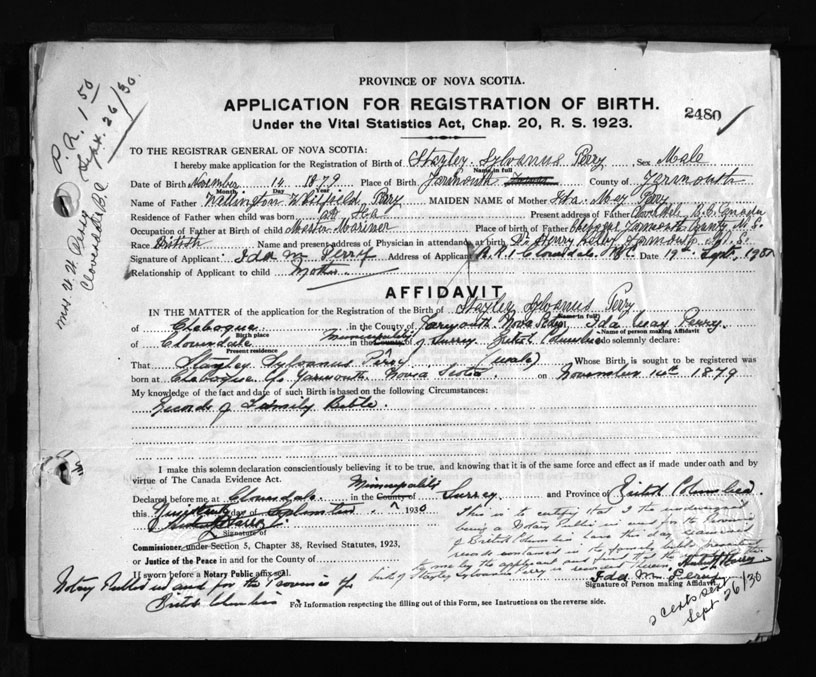 P. A. 1 50
Sept. 26/30
Mrs. W. W. Perry
Cloverdale B.C
PROVINCE OF NOVA SCOTIA.
APPLICATION FOR REGISTRATION OF BIRTH.
Under the Vital Statistics Act, Chap. 20, R. S. 1923.
2480
TO THE REGISTRAR GENERAL OF NOVA SCOTIA:
I hereby make application for the Registration of Birth of Stanley Sylvanus Perry Sex Male
Name in full
Date of Birth November 14 1879 Place of Birth Yarmouth County of Yarmouth
Month Day Year
Name of Father Wellington Whitfield Perry MAIDEN NAME of Mother Ida May Perry
Residence of Father when child was born at Sea Present address of Father Cloverdale B.C. Canada
Occupation of Father at Birth of child Master Mariner Place of birth of Father Chebogue Yarmouth County N.S.
Race British Name and present address of Physician in attendance at birth Dr. Henry Kelly Yarmouth N.S.
Signature of Applicant Ida M Perry Address of Applicant R.R.1 Cloverdale B.C. Date 19th Sept.
Relationship of Applicant to child Mother
AFFIDAVIT
IN THE MATTER of the application for the Registration of the Birth of Stanley Sylvanus Perry
Name in full
of Chebogue in the County of Yarmouth Nova Scotia, Ida May Perry
Birth place Name of person making Affidavit
of Cloverdale in the County Municipality of Surrey British Columbia do solemnly declare:
Present residence
That Stanley Sylvanus Perry (male) Whose Birth is sought to be registered was
born at Chebogue Co Yarmouth Nova Scotia on November 14th 1879
My knowledge of the fact and date of such Birth is based on the following Circumstances:
Record of Family Bible.
I make this solemn declaration conscientiously believing it to be true, and knowing that it is of the same force and effect as if made under oath and by
virtue of The Canada Evidence Act.
Declared before me at Cloverdale in the County of Municipality Surrey and Province of British Columbia.
this day of September 1930
Signature of
Commissioner under Section 5, Chapter 38, Revised Statutes, 1923,
or Justice of the Peace in and for the County of
If sworn before a Notary Public affix seal.
Notary Public in and for the Province of
British Columbia
This is to certify that I the undersigned
being a Notary Public in and for the Province
of British Columbia have this day examined
records contained in the family bible
by me by the applicant and that the
birth of Stanley Sylvanus Perry is recorded therein.
Ida M Perry
Signature of Person making Affidavit
For Information respecting the filling out of this Form, see Instructions on the reverse side.
2 cents
Sept 26/30